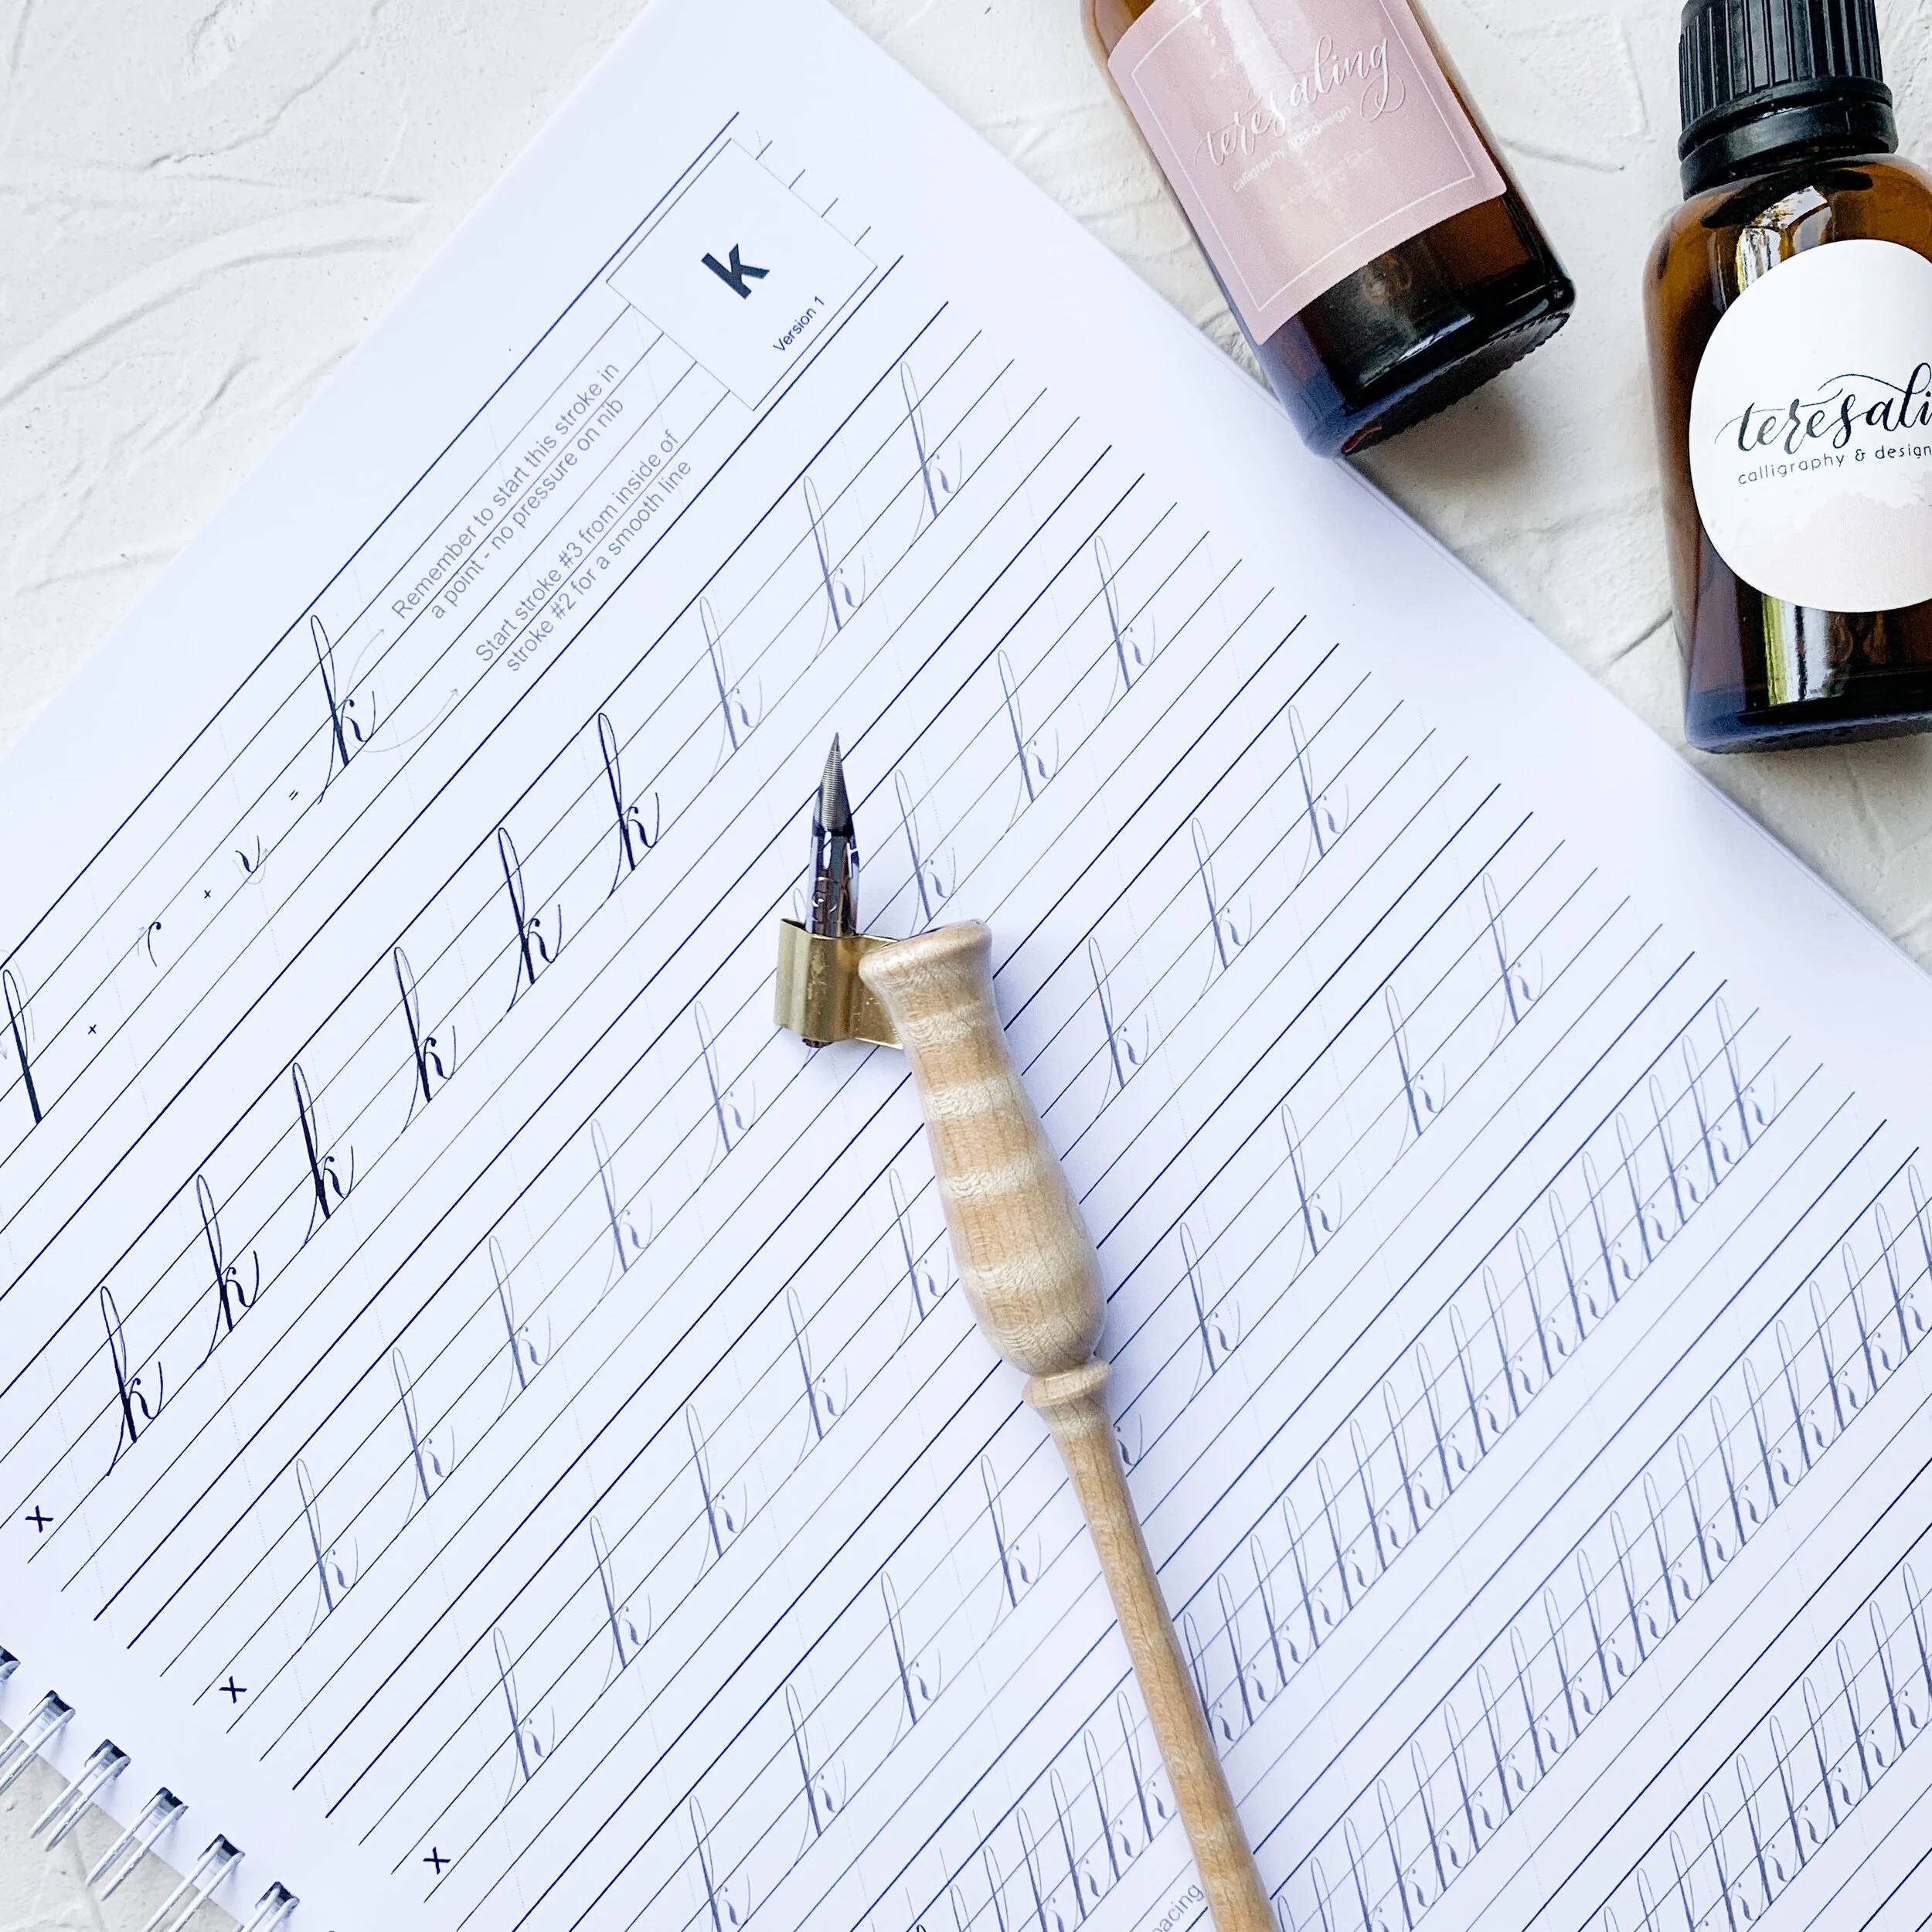 teresaling
calligraphy and design
teresali
calligraphy & design
k
Version 1
Remember to start this stroke in
a point - no pressure on nib
Start stroke #3 from inside of
stroke #2 for a smooth line
+ + = k
x k k k k k k k k k
x k k k k k k k k
x k k k k k k k k
k k k k k k k k